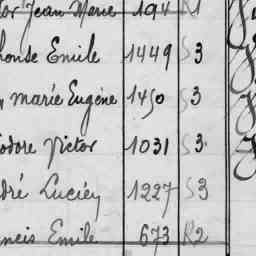 or Jean Marie 194 R1
honse Emile 1449 S3
marie Eugène 1450 S3
odore Victor 1031 S3
dré Lucien 1227 S3
ncis Emile 673 R2